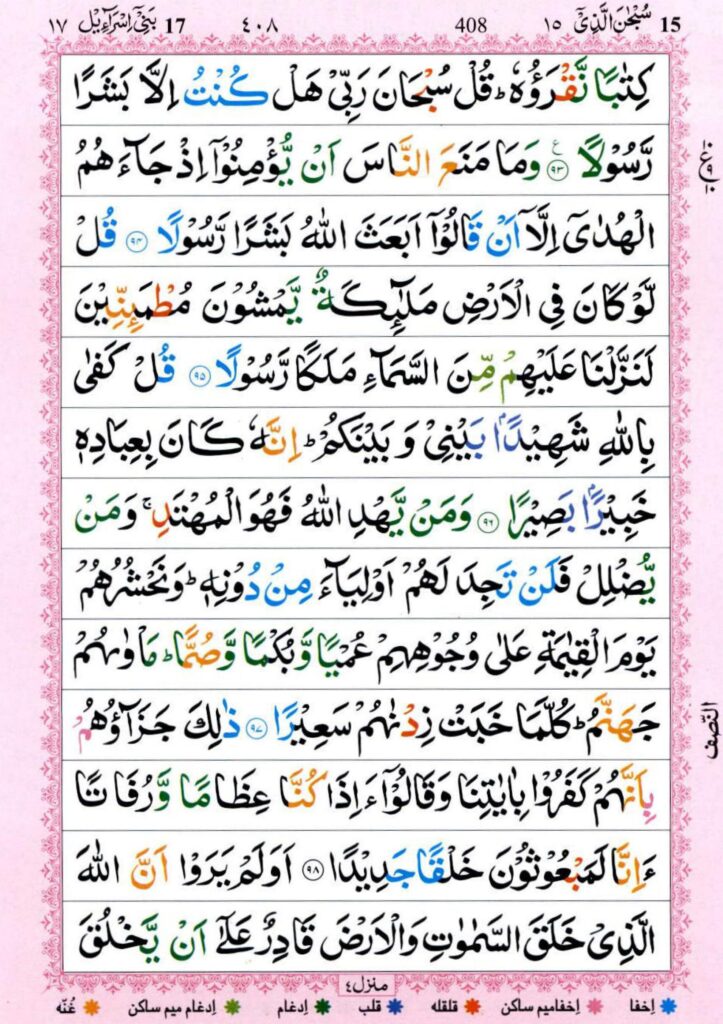 15 سُبْحٰنَ الَّذِیْۤ ١٥ 408 ٤٠٨ 17 بَنِیْۤ اِسْرَآءِیْل ١٧
كِتٰبًا نَّقْرَؤُهٗ ؕ قُلْ سُبْحَانَ رَبِّیْ هَلْ كُنْتُ اِلَّا بَشَرًا
رَّسُوْلًا ﴿٩٣﴾ ع وَمَا مَنَعَ النَّاسَ اَنْ یُّؤْمِنُوْۤا اِذْ جَآءَهُمُ
الْهُدٰۤی اِلَّاۤ اَنْ قَالُوْۤا اَبَعَثَ اللّٰهُ بَشَرًا رَّسُوْلًا ﴿٩٤﴾ قُلْ
لَّوْ كَانَ فِی الْاَرْضِ مَلٰٓئِكَةٌ یَّمْشُوْنَ مُطْمَئِنِّیْنَ
لَنَزَّلْنَا عَلَیْهِمْ مِّنَ السَّمَآءِ مَلَكًا رَّسُوْلًا ﴿٩٥﴾ قُلْ كَفٰی
بِاللّٰهِ شَهِیْدًۢا بَیْنِیْ وَ بَیْنَكُمْ ؕ اِنَّهٗ كَانَ بِعِبَادِهٖ
خَبِیْرًۢا بَصِیْرًا ﴿٩٦﴾ وَمَنْ یَّهْدِ اللّٰهُ فَهُوَ الْمُهْتَدِ ۚ وَمَنْ
یُّضْلِلْ فَلَنْ تَجِدَ لَهُمْ اَوْلِیَآءَ مِنْ دُوْنِهٖ ؕ وَنَحْشُرُهُمْ
یَوْمَ الْقِیٰمَةِ عَلٰی وُجُوْهِهِمْ عُمْیًا وَّبُكْمًا وَّصُمًّا ؕ مَاْوٰىهُمْ
جَهَنَّمُ ؕ كُلَّمَا خَبَتْ زِدْنٰهُمْ سَعِیْرًا ﴿٩٧﴾ ذٰلِكَ جَزَآؤُهُمْ
بِاَنَّهُمْ كَفَرُوْا بِاٰیٰتِنَا وَقَالُوْۤا ءَاِذَا كُنَّا عِظَامًا وَّرُفَاتًا
ءَاِنَّا لَمَبْعُوْثُوْنَ خَلْقًا جَدِیْدًا ﴿٩٨﴾ اَوَلَمْ یَرَوْا اَنَّ اللّٰهَ
الَّذِیْ خَلَقَ السَّمٰوٰتِ وَالْاَرْضَ قَادِرٌ عَلٰۤی اَنْ یَّخْلُقَ
النّصف
منزل ٤
اِخفا اِخفامیم ساکن قلقله قلب اِدغام اِدغام میم ساکن غُنّه